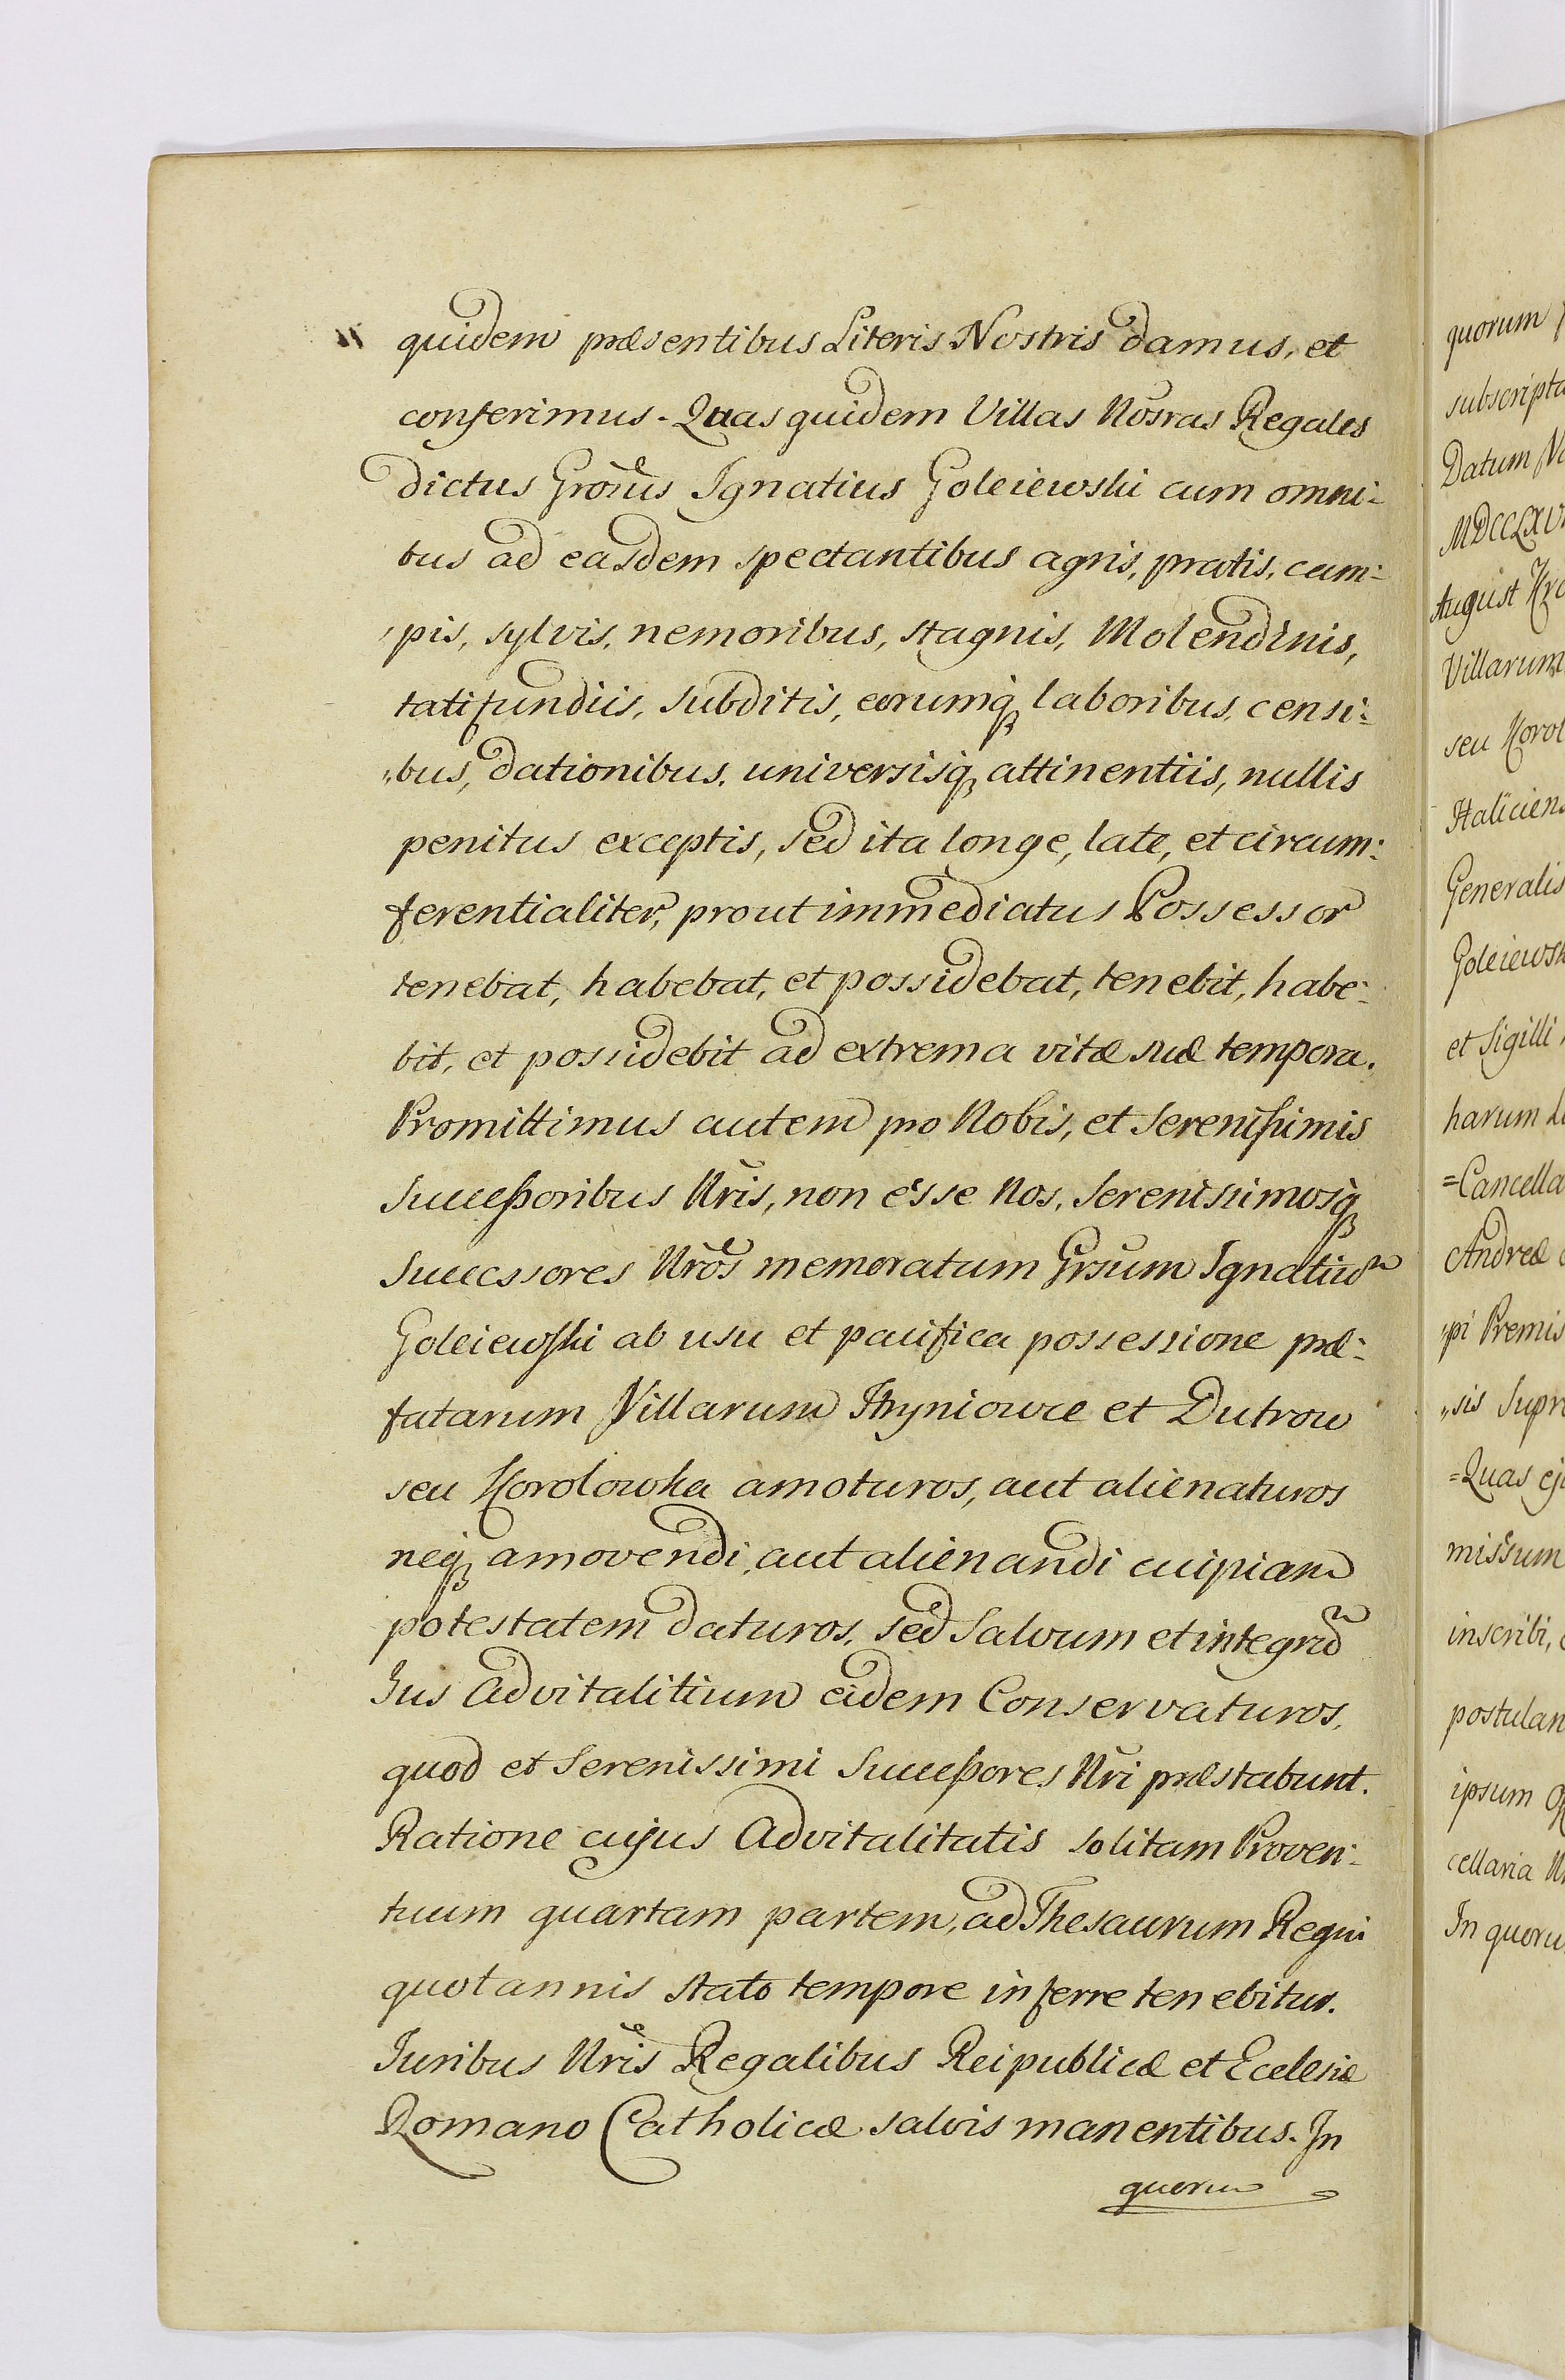 quidem præsentibus Literis Nostris damus, et
conferimus. Quas quidem Villas Nosras Regales
dictus Grosus Ignatius Goleiewski cum omni-
bus ad easdem spectantibus agris, pratis, cam-
pis, sylvis, nemoribus, stagnis, Molendinis,
tatifundiis, subditis, eorumq laboribus, censi-
"bus, dationibus, universisq attinentiis, nullis
penitus exceptis, sed ita longe, late, et circum-
ferentialiter, prout immediatus Possessor
tenebat, habebat, et possidebat, tenebit, habe-
bit, et possidebit ad extrema vitæ suæ tempora.
Promittimus autem pro Nobis, et Serenissimis
Successoribus Nris, non esse Nos, Serenissimosq
Successores Nros memoratum Grsum Ignatium
Goleiewski ab usu et pacifica possessione præ-
fatarum Villarum Hryniowce et Dutrow
seu Korolowka amoturos, aut alienaturos
neq amovendi, aut alienandi cuipiam
potestatem daturos, sed Salvum et integrum
Jus Advitalitium eidem Conservaturos,
quod et Serenissimi Successores Nri præstabunt.
Ratione cujus Advitalitatis solitam Proven-
tuum quartam partem, ad Thesaurum Regni
quotannis stato tempore inferre tenebitur.
Juribus Nris Regalibus Reipublicæ et Eclesiæ
Romano Catholicæ salvis manentibus. In
quorum
quorum
subscripta
Datum
MDCCLXV
August
Villarum
seu Korol
Haliciens
Generalis
Goleiewsk
et Sigilli
harum
=Cancella
Andreæ
"pi Premis
"sis Supre
=Quas ej
missum
inscribi,
postulan
ipsum
cellaria
In quoru